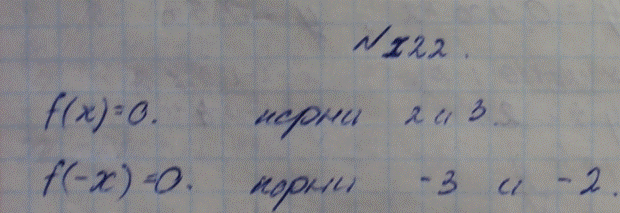 № 122.
f(x)=0. корни 2 и 3.
f(-x)=0. корни -3 и -2.